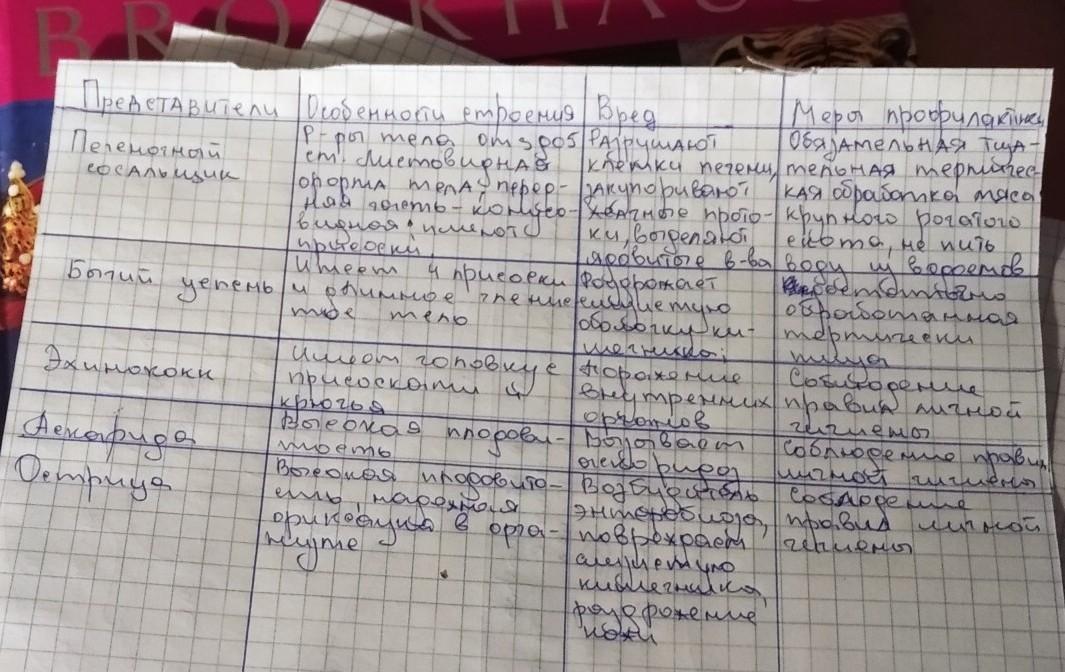 BROCKHAUS
Представители Особенности строения Вред Меры профилактики
Печеночный
сосальщик
Р-ры тела от 3 до 5
см. Листовидная
форма тела, перед-
няя часть - конусо-
видная, имеют
присоски
Разрушают
клетки печени,
закупоривают
желчные прото-
ки, выделяют
ядовитые в-ва
Обязательная тща-
тельная термичес-
кая обработка мяса
крупного рогатого
скота, не пить
воду из водоемов
Бычий цепень
Имеет 4 присоски
и длинное членис-
тое тело
Раздражает
слизистую
оболочку ки-
шечника.
достаточно
обработанная
термически
пища
Эхинококк
Имеет головку с
присосками и
крючья
Поражение
внутренних
органов
Соблюдение
правил личной
гигиены
Аскарида
Высокая плодови-
тость
Вызывает
аскоридоз
Соблюдение правил
личной гигиены
Острица
Высокая плодовито-
сть, наружная
в орга-
низме
Возбудитель
энтеробиоза,
повреждает
слизистую
кишечника,
раздражение
кожи
Соблюдение
правил личной
гигиены